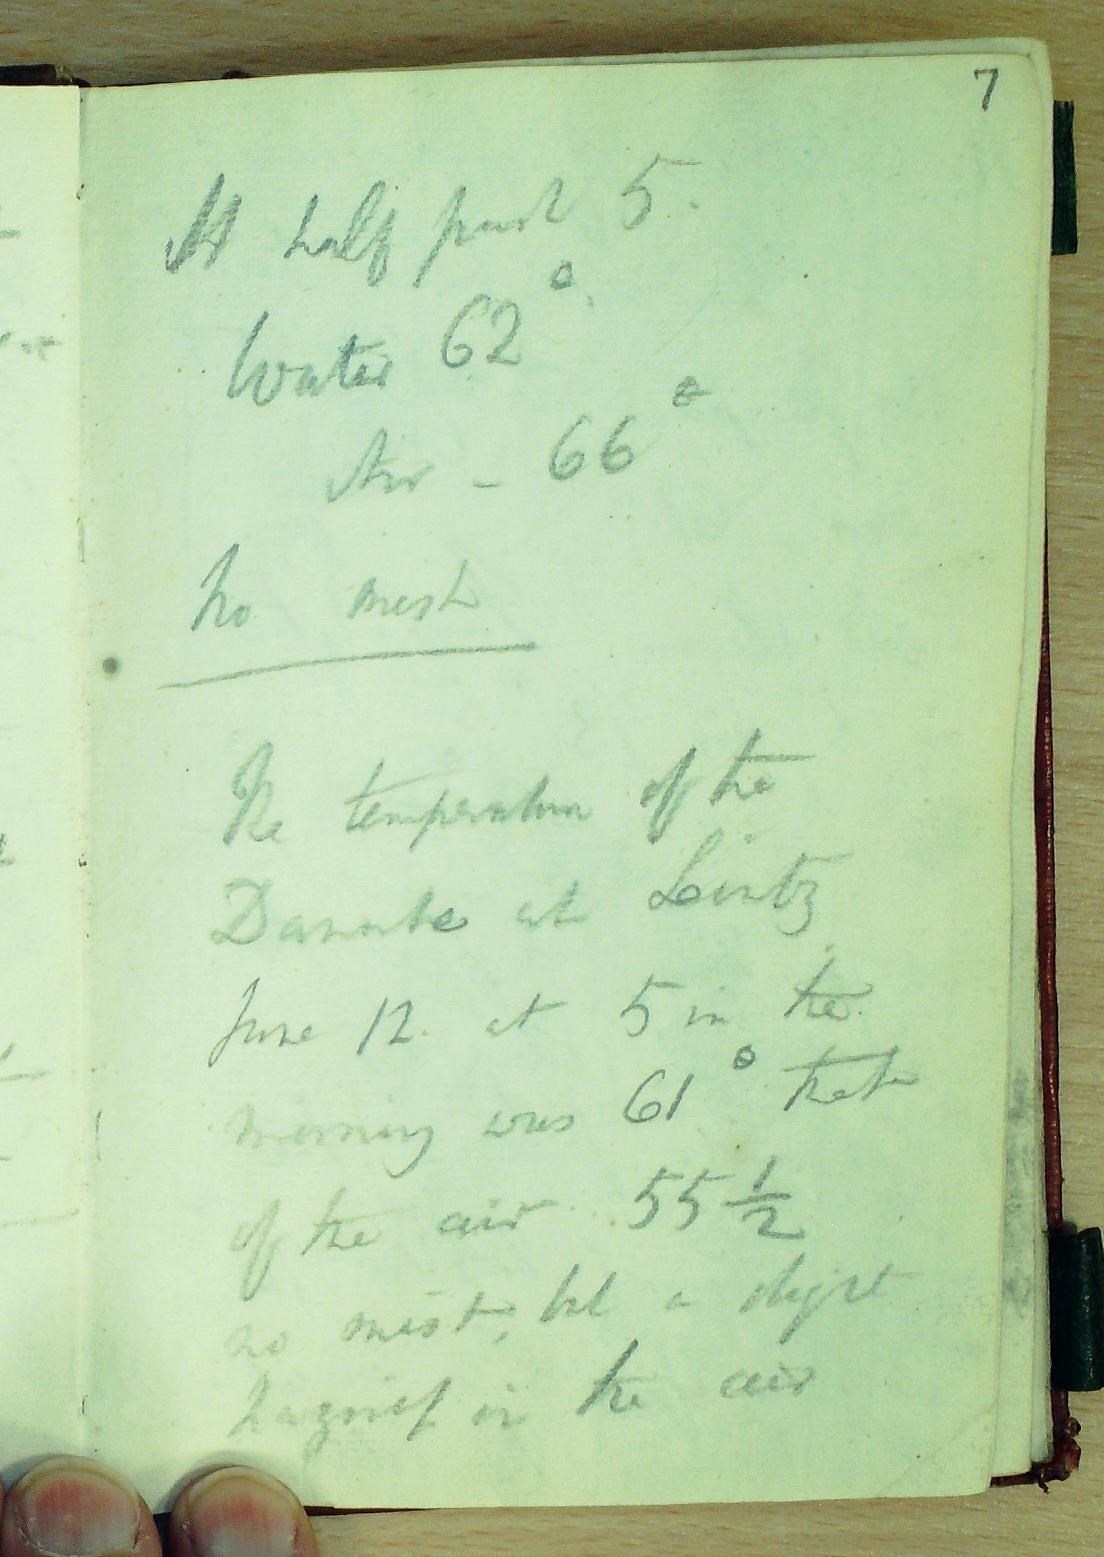 7
At half past 5.
Water 62°.
Air – 66°
No mist
The temperature of the
Danube at Lintz
June 12. at 5 in the
morning was 61° that
of the air 55 1/2
no mist, but a slight
haziness in the air